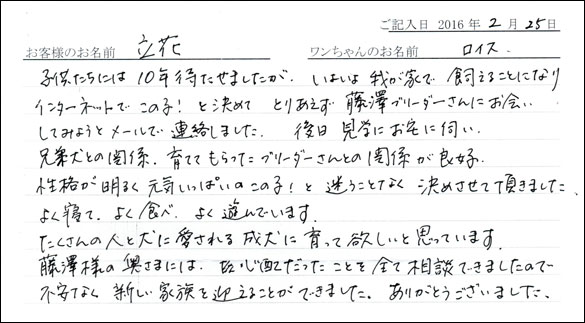 ご記入日 2016 年 2 月 25 日
お客様のお名前 立花 ワンちゃんのお名前 ロイス
子供たちには 10年待たせましたが、いよいよ 我が家で 飼えることになり
インターネットで この子！と決めて とりあえず 藤澤ブリーダーさんにお会い
してみようとメールで連絡しました。 後日 見学にお宅に伺い、
兄弟犬との関係、育ててもらったブリーダーさんとの関係が良好、
性格が明るく元気いっぱいのこの子！と 迷うことなく 決めさせて頂きました、
よく寝て、よく食べ、よく遊んでいます。
たくさんの人と犬に愛される成犬に育って欲しいと思っています。
藤澤様の奥さまには、心配だったことを全て相談できましたので
不安なく 新しい家族を迎えることができました。ありがとうございました。